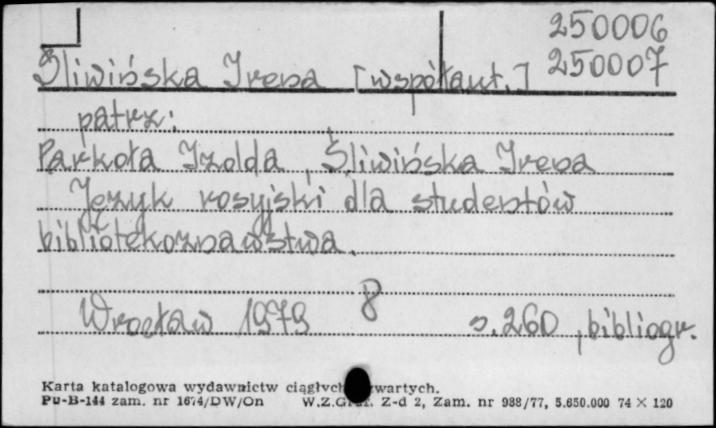 250006
Śliwińska Irena [współaut.] 250007
patrz:
Parkoła Izolda, Śliwińska Irena
Język rosyjski dla studentów
bibliotekoznawstwa.
Wrocław 1979 8 s. 260, bibliogr.
Karta katalogowa wydawnictw ciągłych zwartych.
Pu-B-144 zam. nr 1674/DW/On W.Z.Graf. Z-d 2, Zam. nr 988/77, 5.650.000 74 × 120